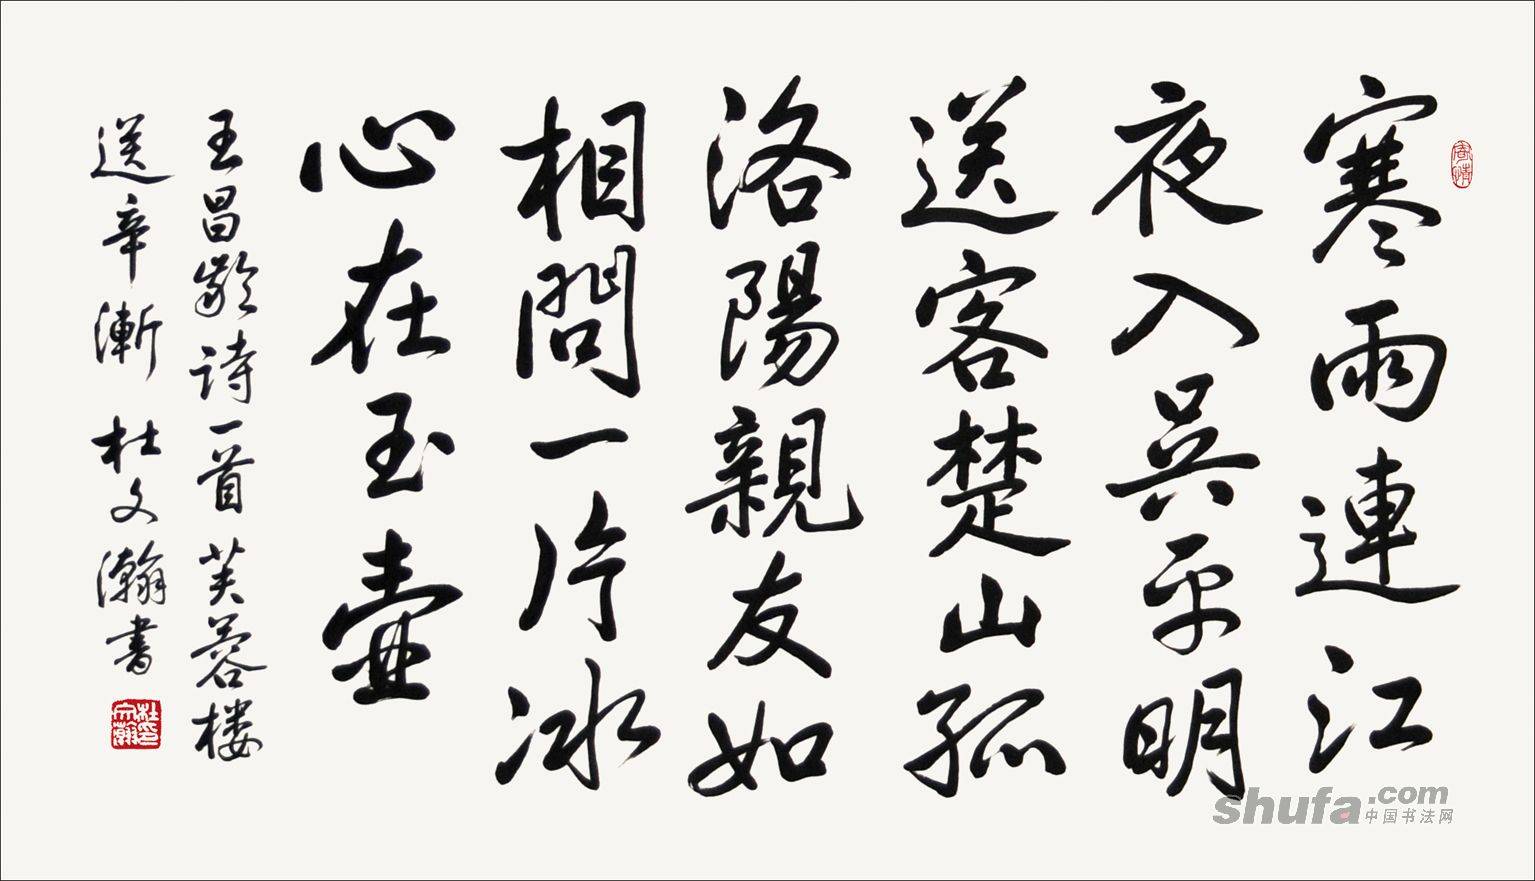 寒雨連江
夜入吴平明
送客楚山孤
洛陽親友如
相問一片冰
心在玉壷
王昌齡诗一首芙蓉楼
送辛漸 杜文瀚書
杜文瀚印
shufa.com
中国书法网